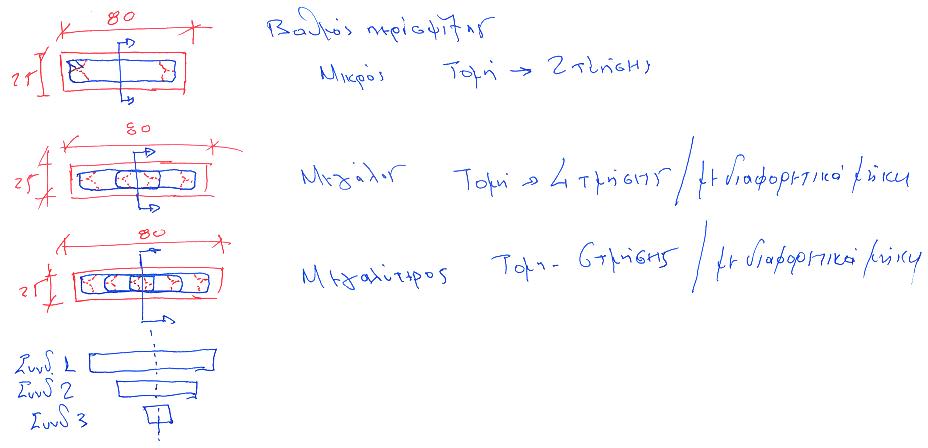 80
Βαθμός περίσφιξης
25
Μικρός Τομή → 2 τμήσεις
80
25
Μεγάλος Τομή → 4 τμήσεις / με διαφορετικά μήκη
80
25
Μεγαλύτερος Τομή - 6 τμήσεις / με διαφορετικά μήκη
Συνδ 1
Συνδ 2
Συνδ 3